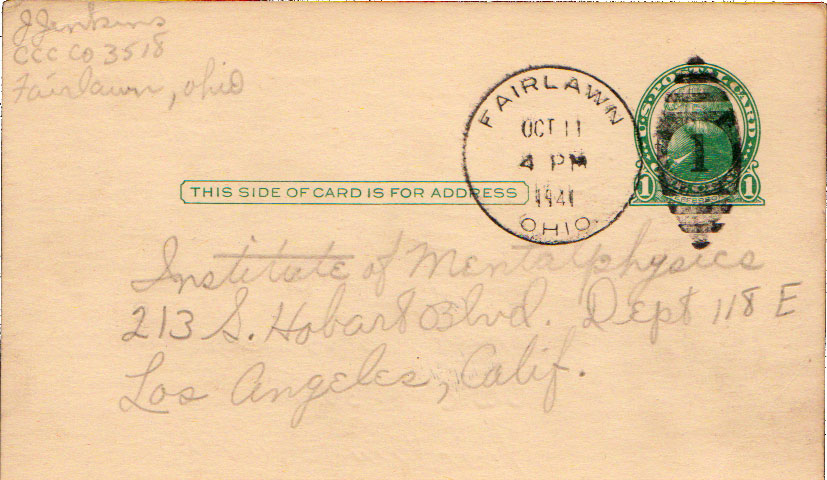 J Jenkins
CCC CO 3518
Fairlawn, ohio
FAIRLAWN
OCT 11
4 PM
1941
OHIO
U.S. POSTAL CARD
1
1 1
THIS SIDE OF CARD IS FOR ADDRESS
Institute of Mentalphysics
213 S. Hobart Blvd. Dept 118 E
Los Angeles, Calif.